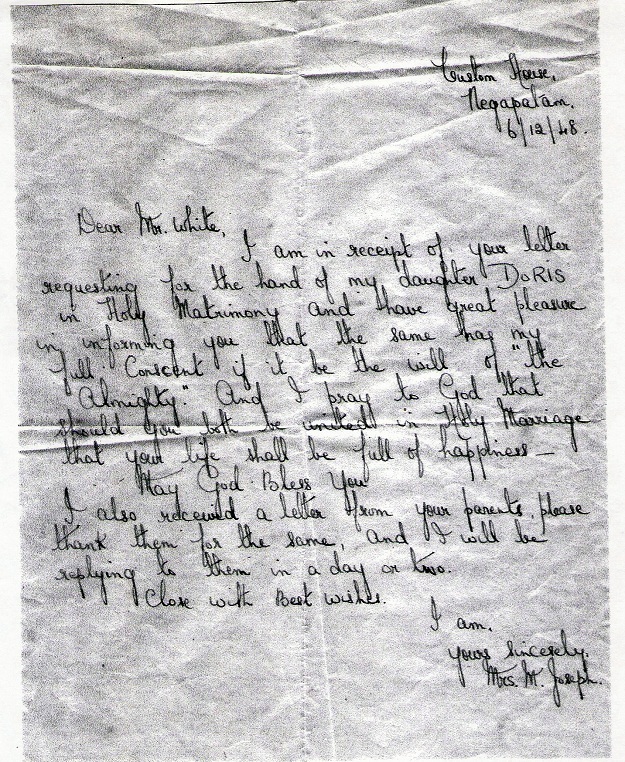 Custom House,
Negapatam.
6/12/48.
Dear Mr. White,
I am in receipt of your letter
requesting for the hand of my daughter DORIS
in Holy Matrimony and have great pleasure
in informing you that the same has my
full Consent if it be the will of "the
Almighty." And I pray to God that
should you both be united in Holy Marriage
that your life shall be full of happiness —
May God Bless You
I also received a letter from your parents, please
thank them for the same, and I will be
replying to them in a day or two.
Close with Best wishes.
I am,
yours sincerely,
Mrs. M. Joseph.